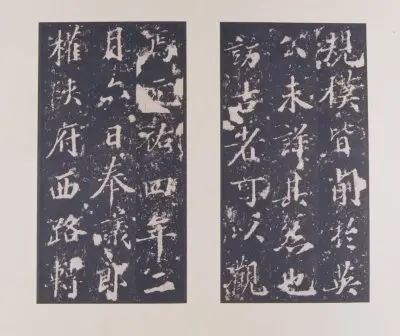 規模皆前於英
公未詳其然也
訪古者可以觀
焉元祐四年二
月六日奉議郎
權陝府西路轉